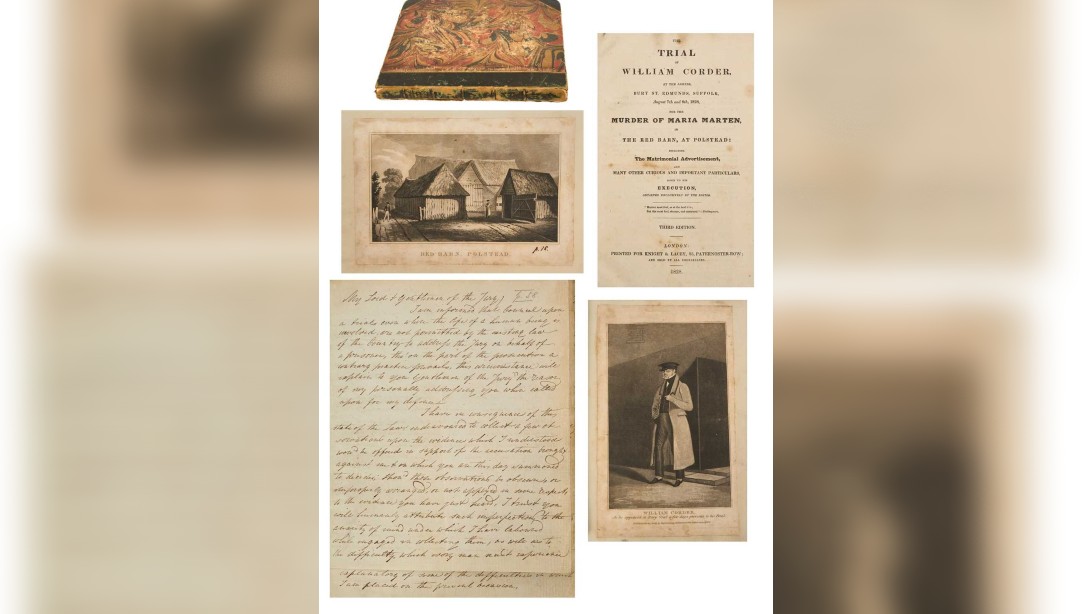 THE
TRIAL
OF
WILLIAM CORDER,
AT THE ASSIZES,
BURY ST. EDMUNDS, SUFFOLK,
August 7th and 8th, 1828,
FOR THE
MURDER OF MARIA MARTEN,
IN
THE RED BARN, AT POLSTEAD:
INCLUDING
The Matrimonial Advertisement,
AND
MANY OTHER CURIOUS AND IMPORTANT PARTICULARS,
EXECUTION,
THIRD EDITION.
LONDON:
PRINTED FOR KNIGHT & LACEY, 55, PATERNOSTER-ROW;
AND SOLD BY ALL BOOKSELLERS.
1828.
RED BARN, POLSTEAD
p. 18.
My Lord & Gentlemen of the Jury,
I am informed that Counsel upon
a trial even where the life of a human being is
involved are not permitted by the existing law
of the Country to address the Jury on behalf of
a prisoner, tho' on the part of the prosecution a
contrary practice prevails, this circumstance will
explain to you Gentlemen of the Jury the reason
of my personally addressing you when called
upon for my defence.
I have in consequence of this
state of the Law endeavoured to collect a few ob
servations upon the evidence which I understood
would be offered in support of the accusation brought
against me & on which you are this day summoned
to decide. Should these observations be obscure or
improperly arranged, or not applied in some respects
to the evidence you have just heard, I trust you
will humanely attribute such imperfection to the
anxiety of mind under which I have laboured
while engaged in collecting them, as well as to
the difficulty which every man must experience
explanatory of some of the difficulties in which
I am placed on the present occasion.
WILLIAM CORDER,